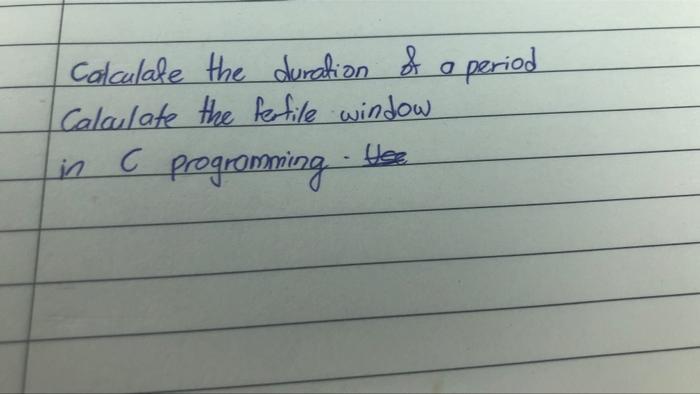 Calculate the duration of a period
Calculate the fertile window
in C programming. Use